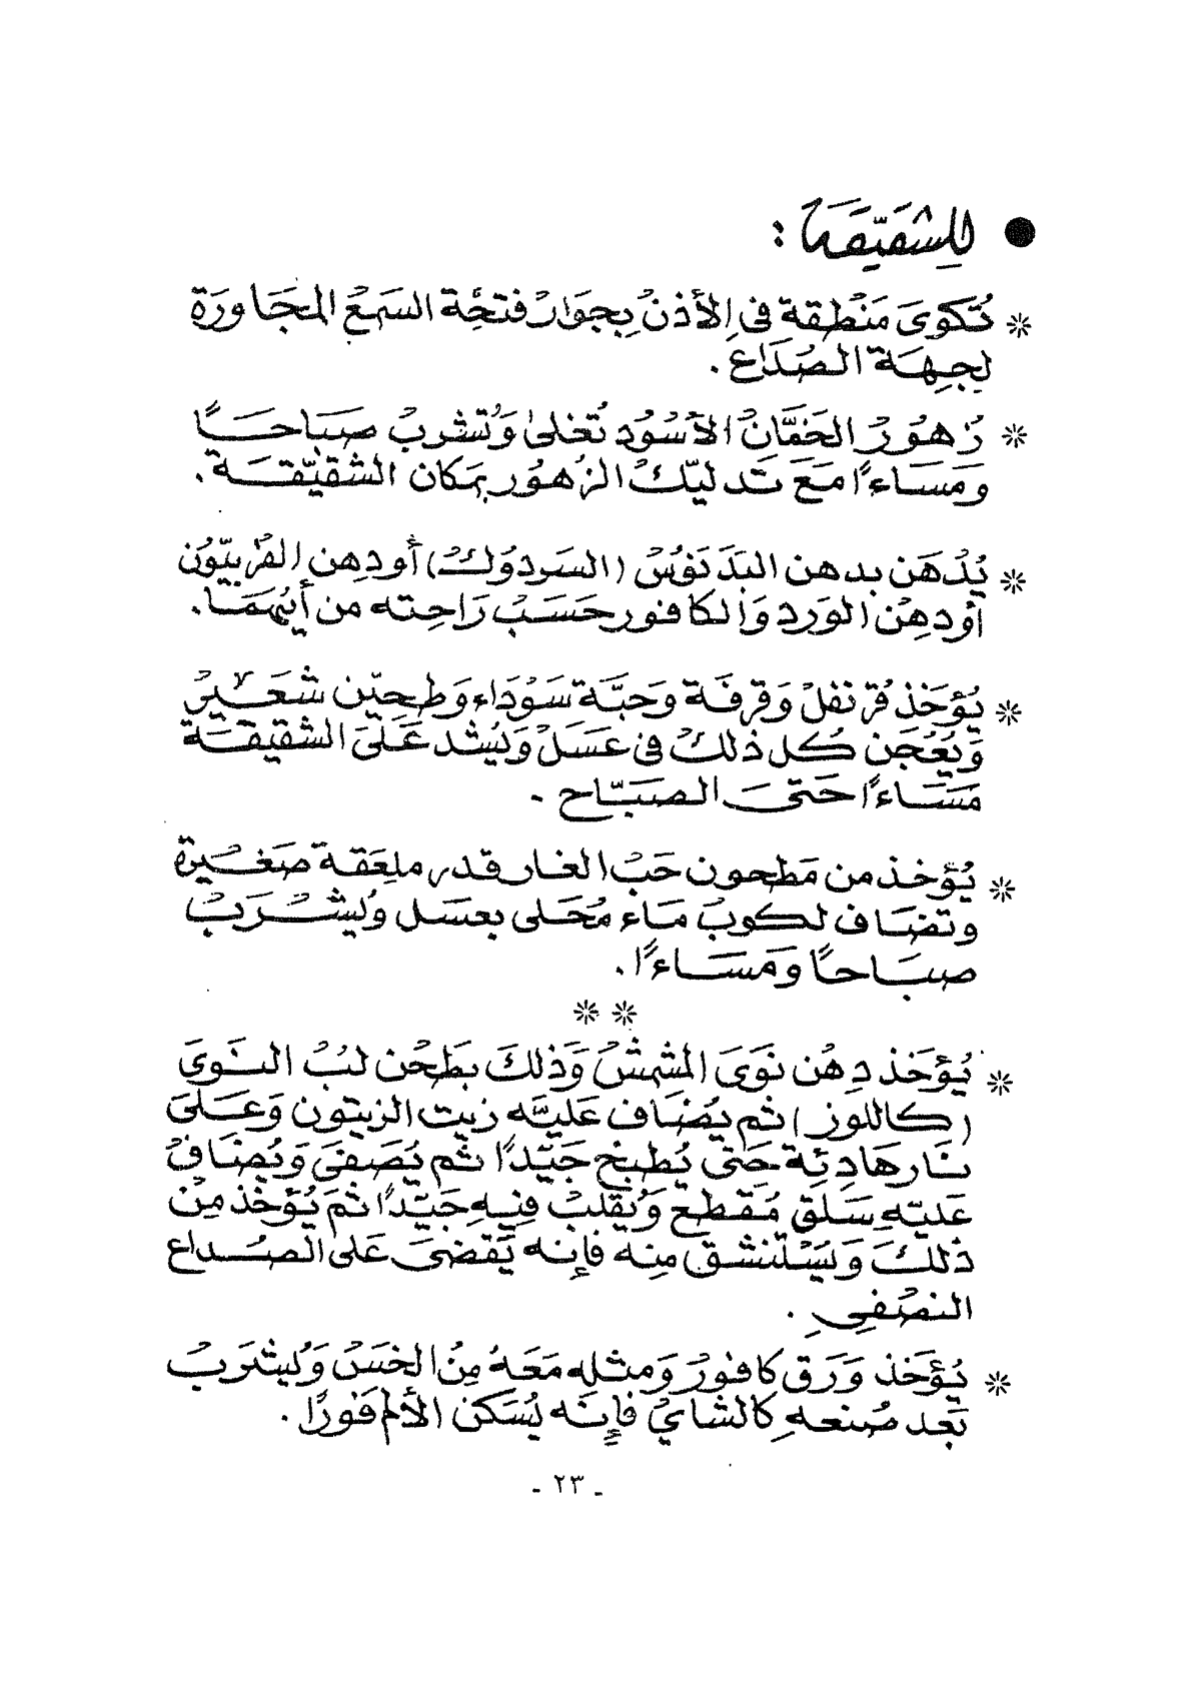 ● للشقيقة :
* تُكوى مَنْطِقة في الأذنْ بِجوَارْ فتحَة السَمعْ المجَاورَة
لجِهَة الصُدَاع .
* زُهوُرْ الخَمَّانْ الأسْوُد تُغلى وَتُشربْ صبَاحًا
وَمَسَاءًا مَعَ تَدليّكْ الزهوُر بمَكان الشقيّقة .
* يُدْهَن بدهن البَدَنوُسْ (السَردوُك) أودِهن الفرْبيّوُن
أودهِنْ الورَد وَالكافور حَسَبْ رَاحِته من أيُهمَا .
* يُؤخَذ قُرنفلْ وَقرفَة وَحبَّة سَوْدَاء وَطحِيّن شعَيْر
وَيُعْجَن كُل ذلكْ فى عَسَلْ وَيُشد عَلىَ الشقيْقَة
مَسَاءًا حَتىَ الصبَّاح .
* يُؤخذ من مَطحون حَبْ الغار قدر ملعَقة صَغيْرة
وتضَاف لكوبْ مَاء مُحَلى بعسَل وَيُشْرَبْ
صبَاحًا وَمَسَاءًا .
* *
* يُؤخَذ دِهُن نوَىَ المشمشْ وَذلكَ بَطحْن لبُ النوَىَ
(كاللوز) ثم يُضَاف عَليَّه زيت الزيتون وَعَلىَ
نَار هَادِئة حَتى يُطبخ جَيّدًا ثم يُصَفىَ وَيُضَافْ
عَليّهِ سَلق مُقَطع وَيُقلبْ فيهِ جَيّدًا ثمَ يُؤخْذ مِنْ
ذلكَ وَيَسْتنشق مِنه فإنه يَقضىَ عَلى الصُداع
النصْفِي .
* يُؤخَذ وَرَق كافورْ وَمثلِه مَعَهُ مِنْ الخَسْ وَيُشرَبْ
بَعد صُنعهِ كالشايْ فإنَه يُسَكن الألم فَورًا .
- ٢٣ -